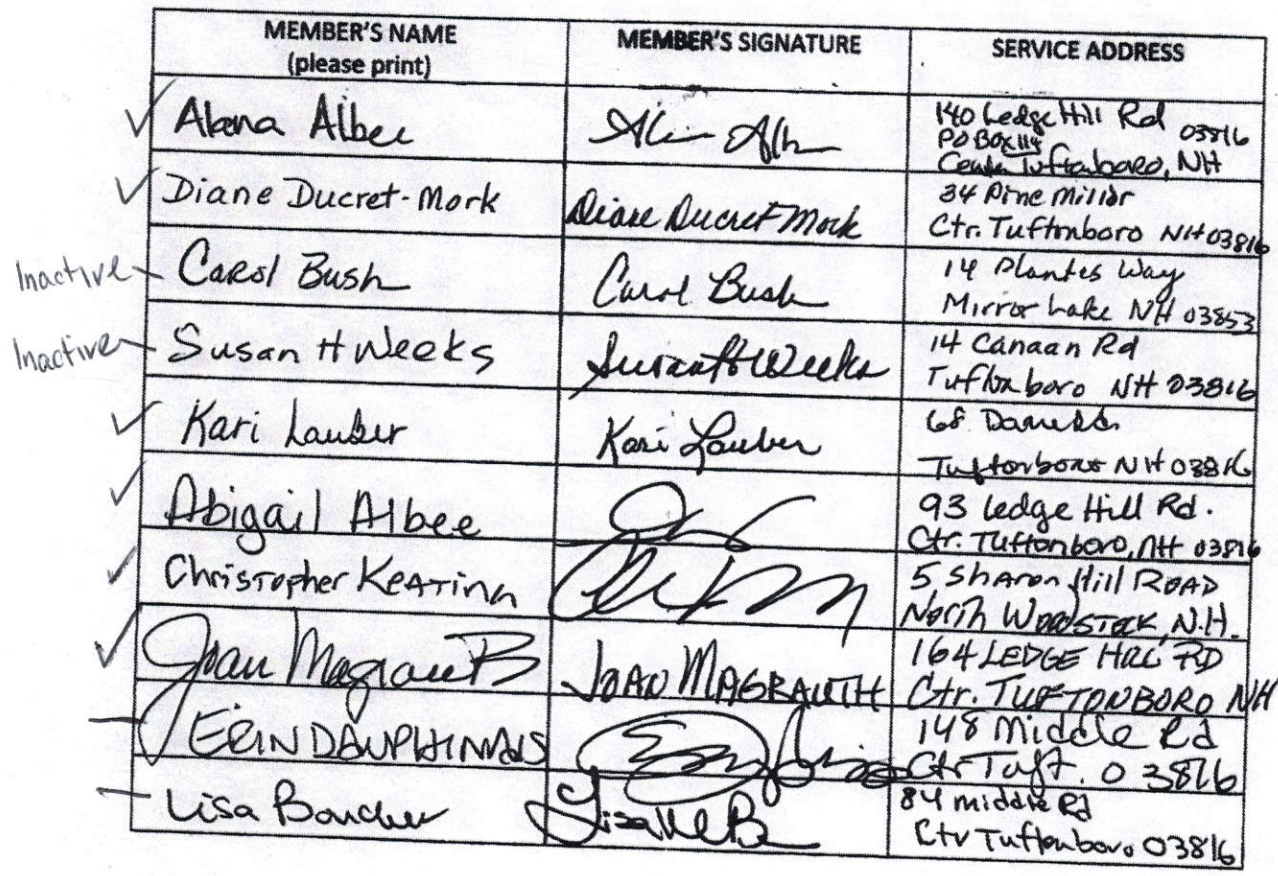 MEMBER'S NAME
(please print)
MEMBER'S SIGNATURE
SERVICE ADDRESS
Alana Albee
140 Ledge Hill Rd 03816
PO Box 114
Center Tuftonboro, NH
Diane Ducret-Mork
Diane Ducret Mork
34 Pine
Ctr. Tuftonboro NH 03816
Inactive
Carol Bush
Carol Bush
14 Plantes Way
Mirror Lake NH 03853
Inactive
Susan H Weeks
Susan H Weeks
14 Canaan Rd
Tuftonboro NH 03816
Kari Lauber
Kari Lauber
68
Tuftonboro NH 03816
Abigail Albee
93 Ledge Hill Rd.
Ctr. Tuftonboro, NH 03816
Christopher Keating
5 Sharon Hill ROAD
North Woodstock, N.H.
Joan Magrauth
JOAN MAGRAUTH
164 LEDGE HILL RD
Ctr. TUFTONBORO NH
ERIN DAUPHINAIS
148 Middle Rd
Ctr Tuft. 03816
Lisa Boucher
84 middle Rd
Ctr Tuftonboro 03816